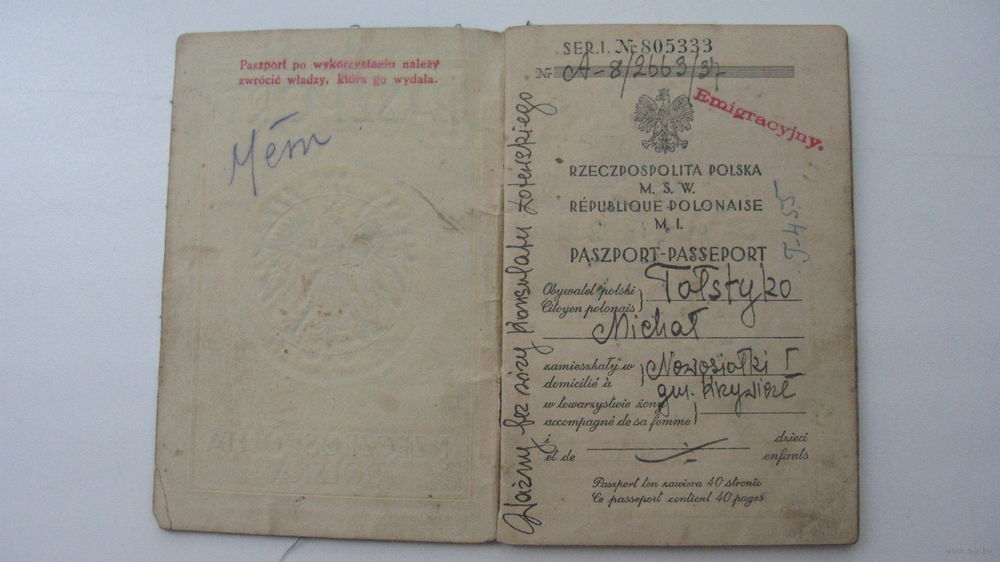 Paszport po wykorzystaniu należy
zwrócić władzy, która go wydała.
SER.I. № 805333
№ A-8/2663/37
Emigracyjny.
RZECZPOSPOLITA POLSKA
M. S. W.
RÉPUBLIQUE POLONAISE
M. I.
PASZPORT-PASSEPORT
Obywatel polski
Citoyen polonais
Tołstyko
Michał
zamieszkały w
domicilié à
Nowosiołki I
gm. Krzywicze
w towarzystwie żony
accompagné de sa femme
i dzieci
et de enfants
Paszport ten zawiera 40 stronic
Ce passeport contient 40 pages
Ważny bez wizy Konsulatu Łotewskiego